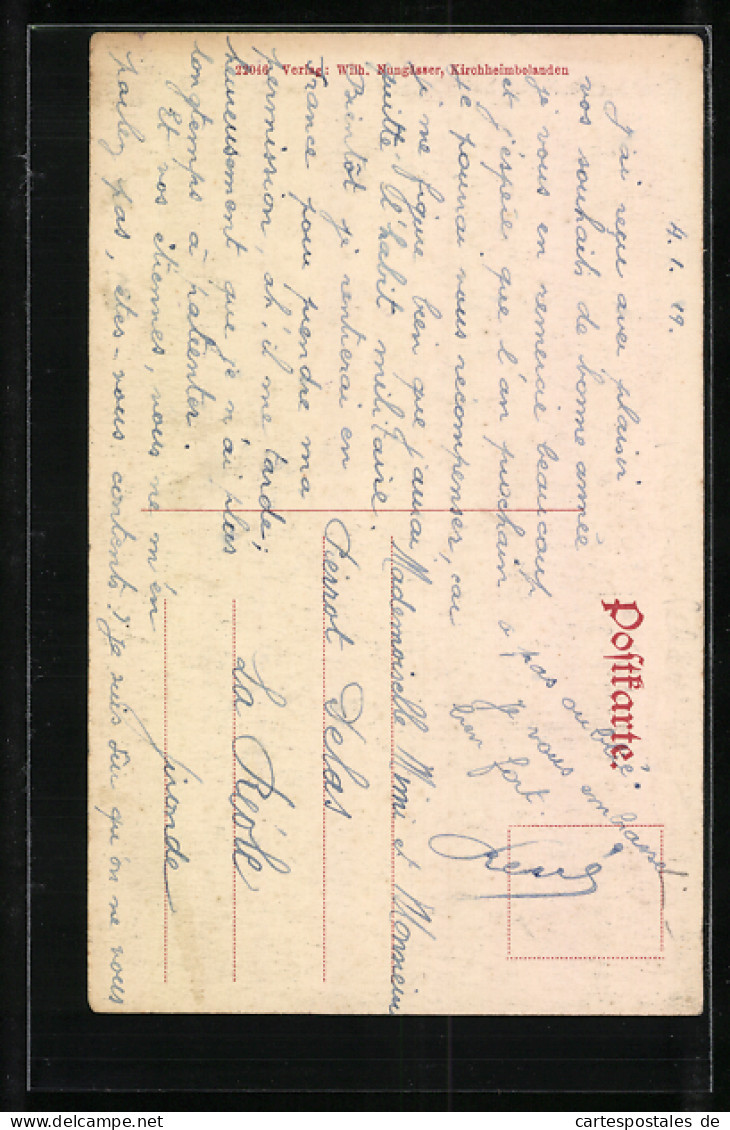 4.1.19.
J'ai reçu avec plaisir
vos souhaits de bonne année
je vous en remercie beaucoup
et j'espère que l'an prochain
je pourrai vous recompenser, car
je me figure bien que j'aurai
quitté l'habit militaire.
Bientôt je rentierai en
France pour prendre ma
permission, ah! il me tarde;
heureusement que je n'ai plus
longtemps à patienter.
Et vos étrennes, vous ne m'en
parlez pas, êtes-vous contents? Je suis sûr qu'on ne vous
a pas oublié.
Je vous embrasse
bien fort.
Postkarte.
Mademoiselle Mimi et Monsieur
Pierrot Delas
La Réole
Gironde
22046 Verlag: Wilh. Nungässer, Kirchheimbolanden
cartespostales de